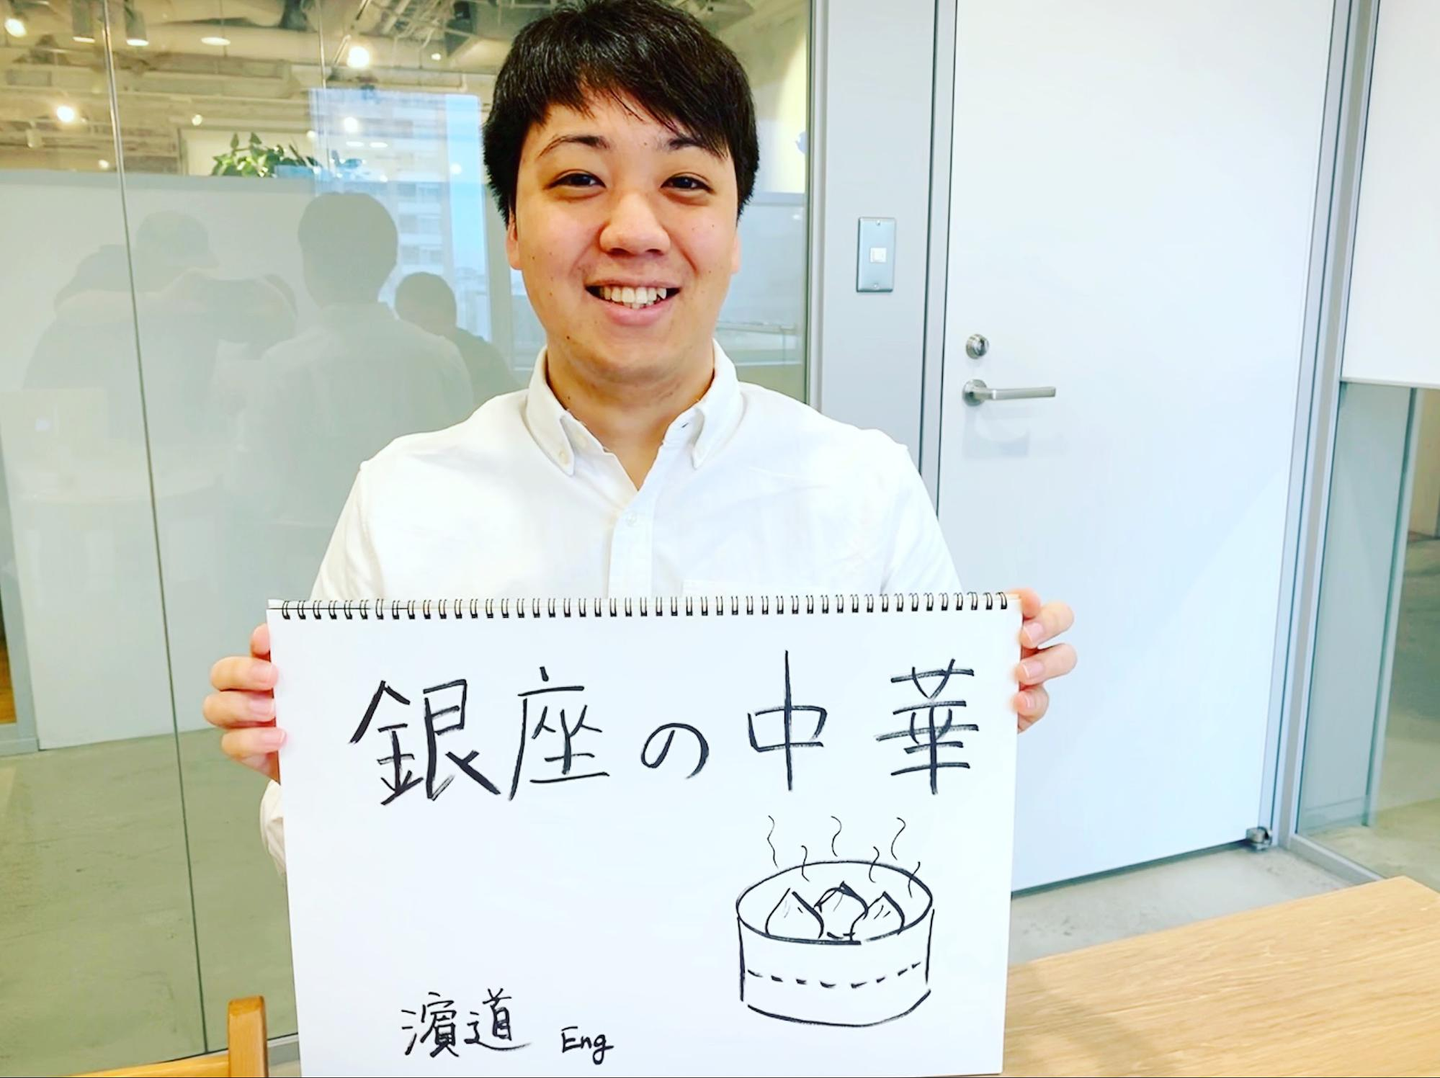 銀座の中華
濱道 Eng